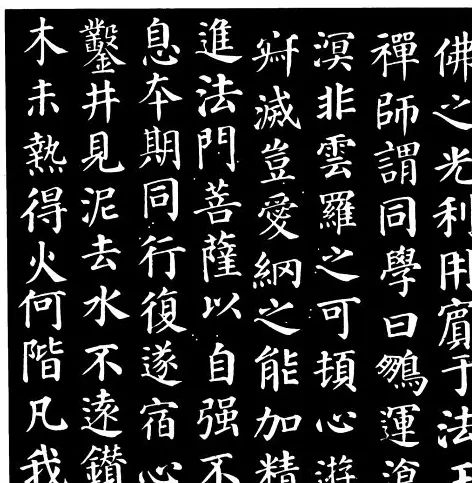 佛之光利用賓于法王
禪師謂同學曰鵬運滄
溟非雲羅之可頓心遊
寂滅豈愛網之能加精
進法門菩薩以自强不
息本期同行復遂宿心
鑿井見泥去水不遠鑽
木未熱得火何階凡我